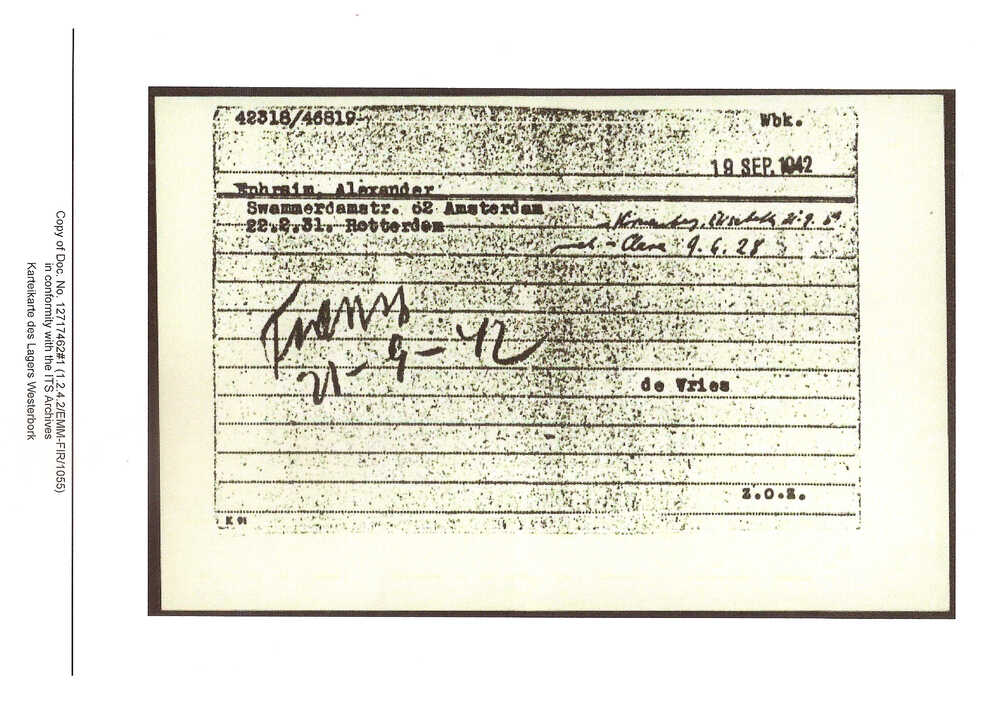 42318/46819
Wbk.
19 SEP. 1942
Ephraim, Alexander
Swammerdamstr. 62 Amsterdam
22.2.31. Rotterdam
9.6.28
Transp
21-9-42
de Vries
Z.O.Z.
K 91
Copy of Doc. No. 12717462#1 (1.2.4.2/EMM-FIR/1055)
in conformity with the ITS Archives
Karteikarte des Lagers Westerbork